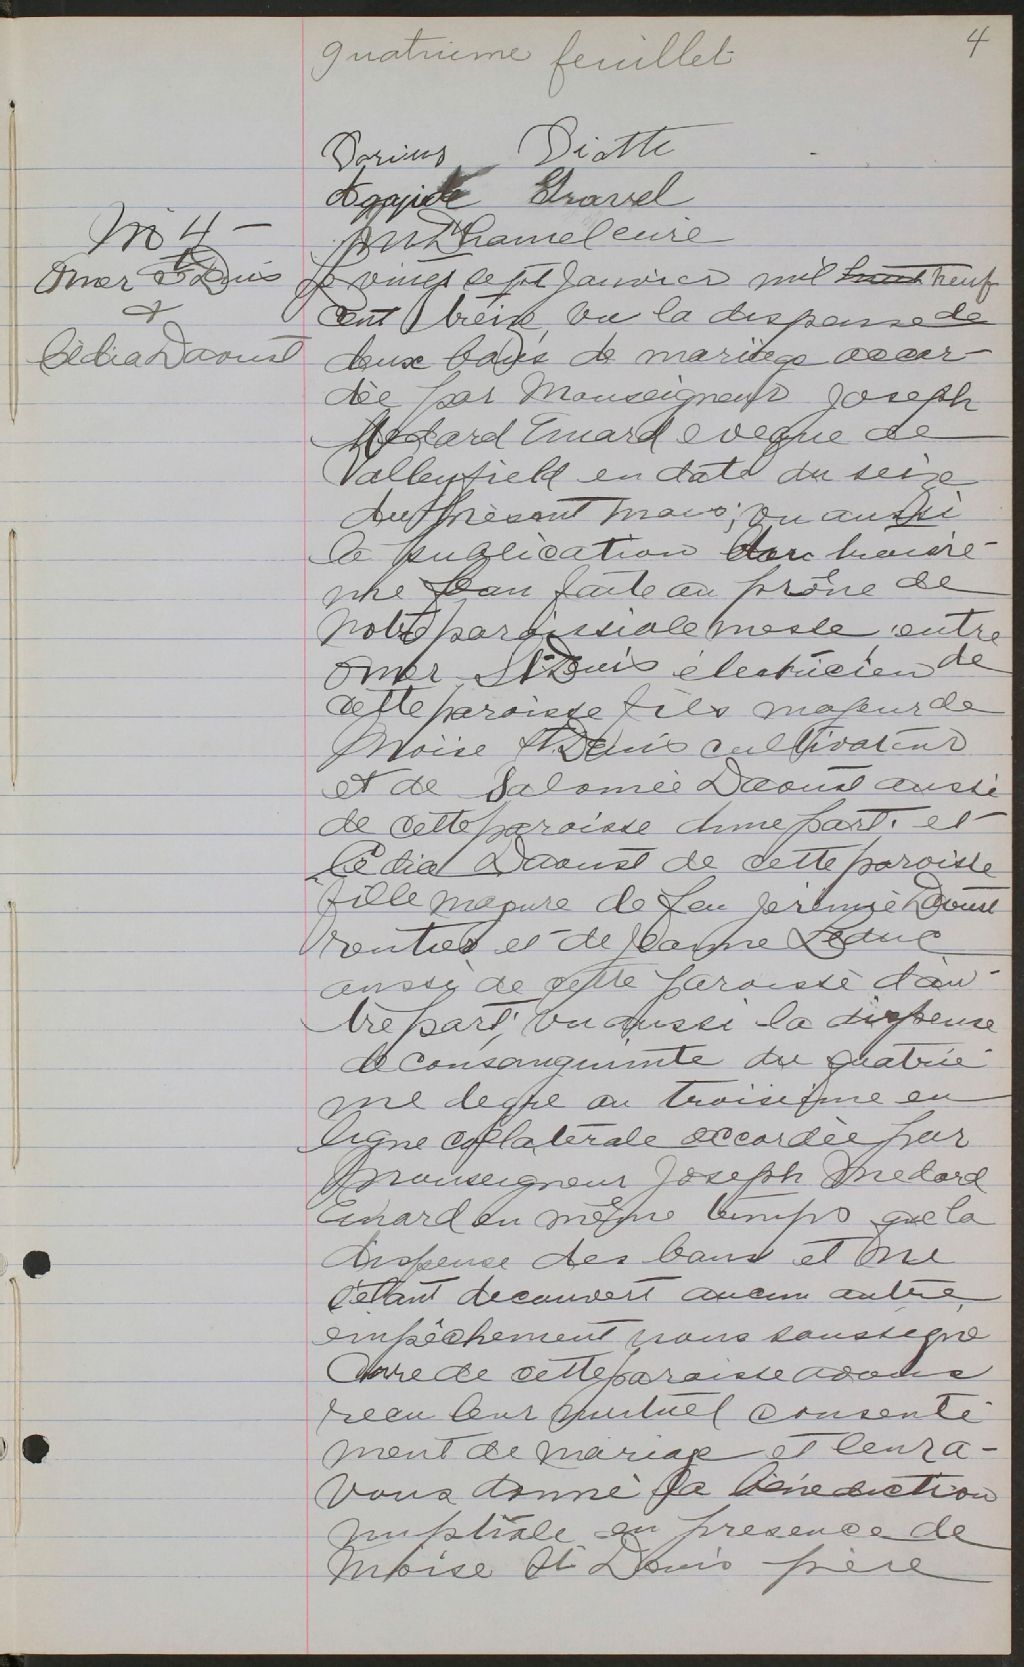 quatrieme feuillet
4
Darius Diotte
Agapit Gravel
J M Duhamel cure
M 4 —
Omer St Denis
&
Cédia Daoust
Le vingt sept Janvier mil huit neuf
cent treize vu la dispense de
deux bans de mariage accor-
dée par Monseigneur Joseph
Medard Emard eveque de
Valleyfield en date du seize
du présent mois; vu aussi
la publication du troisiè-
me ban faite au prône de
notre paroissiale messe entre
Omer St Denis électricien de
cette paroisse fils majeur de
Moise St Denis cultivateur
et de Salomée Daoust aussi
de cette paroisse d'une part. et
Cédia Daoust de cette paroisse
fille majeure de feu Jérémie Daoust
rentier et de Jeanne Leduc
aussi de cette paroisse d'au-
tre part; vu aussi la dispense
de consanguinite du quatriè-
me degre au troisième en
ligne collatérale accordée par
Monseigneur Joseph Medard
Emard en même temps que la
dispense des bans et ne
s'étant decouvert aucun autre
empêchement nous soussigné
Cure de cette paroisse avons
recu leur mutuel consente
ment de mariage et leur a-
vons donné la bénédiction
nuptiale en presence de
Moise St Denis père